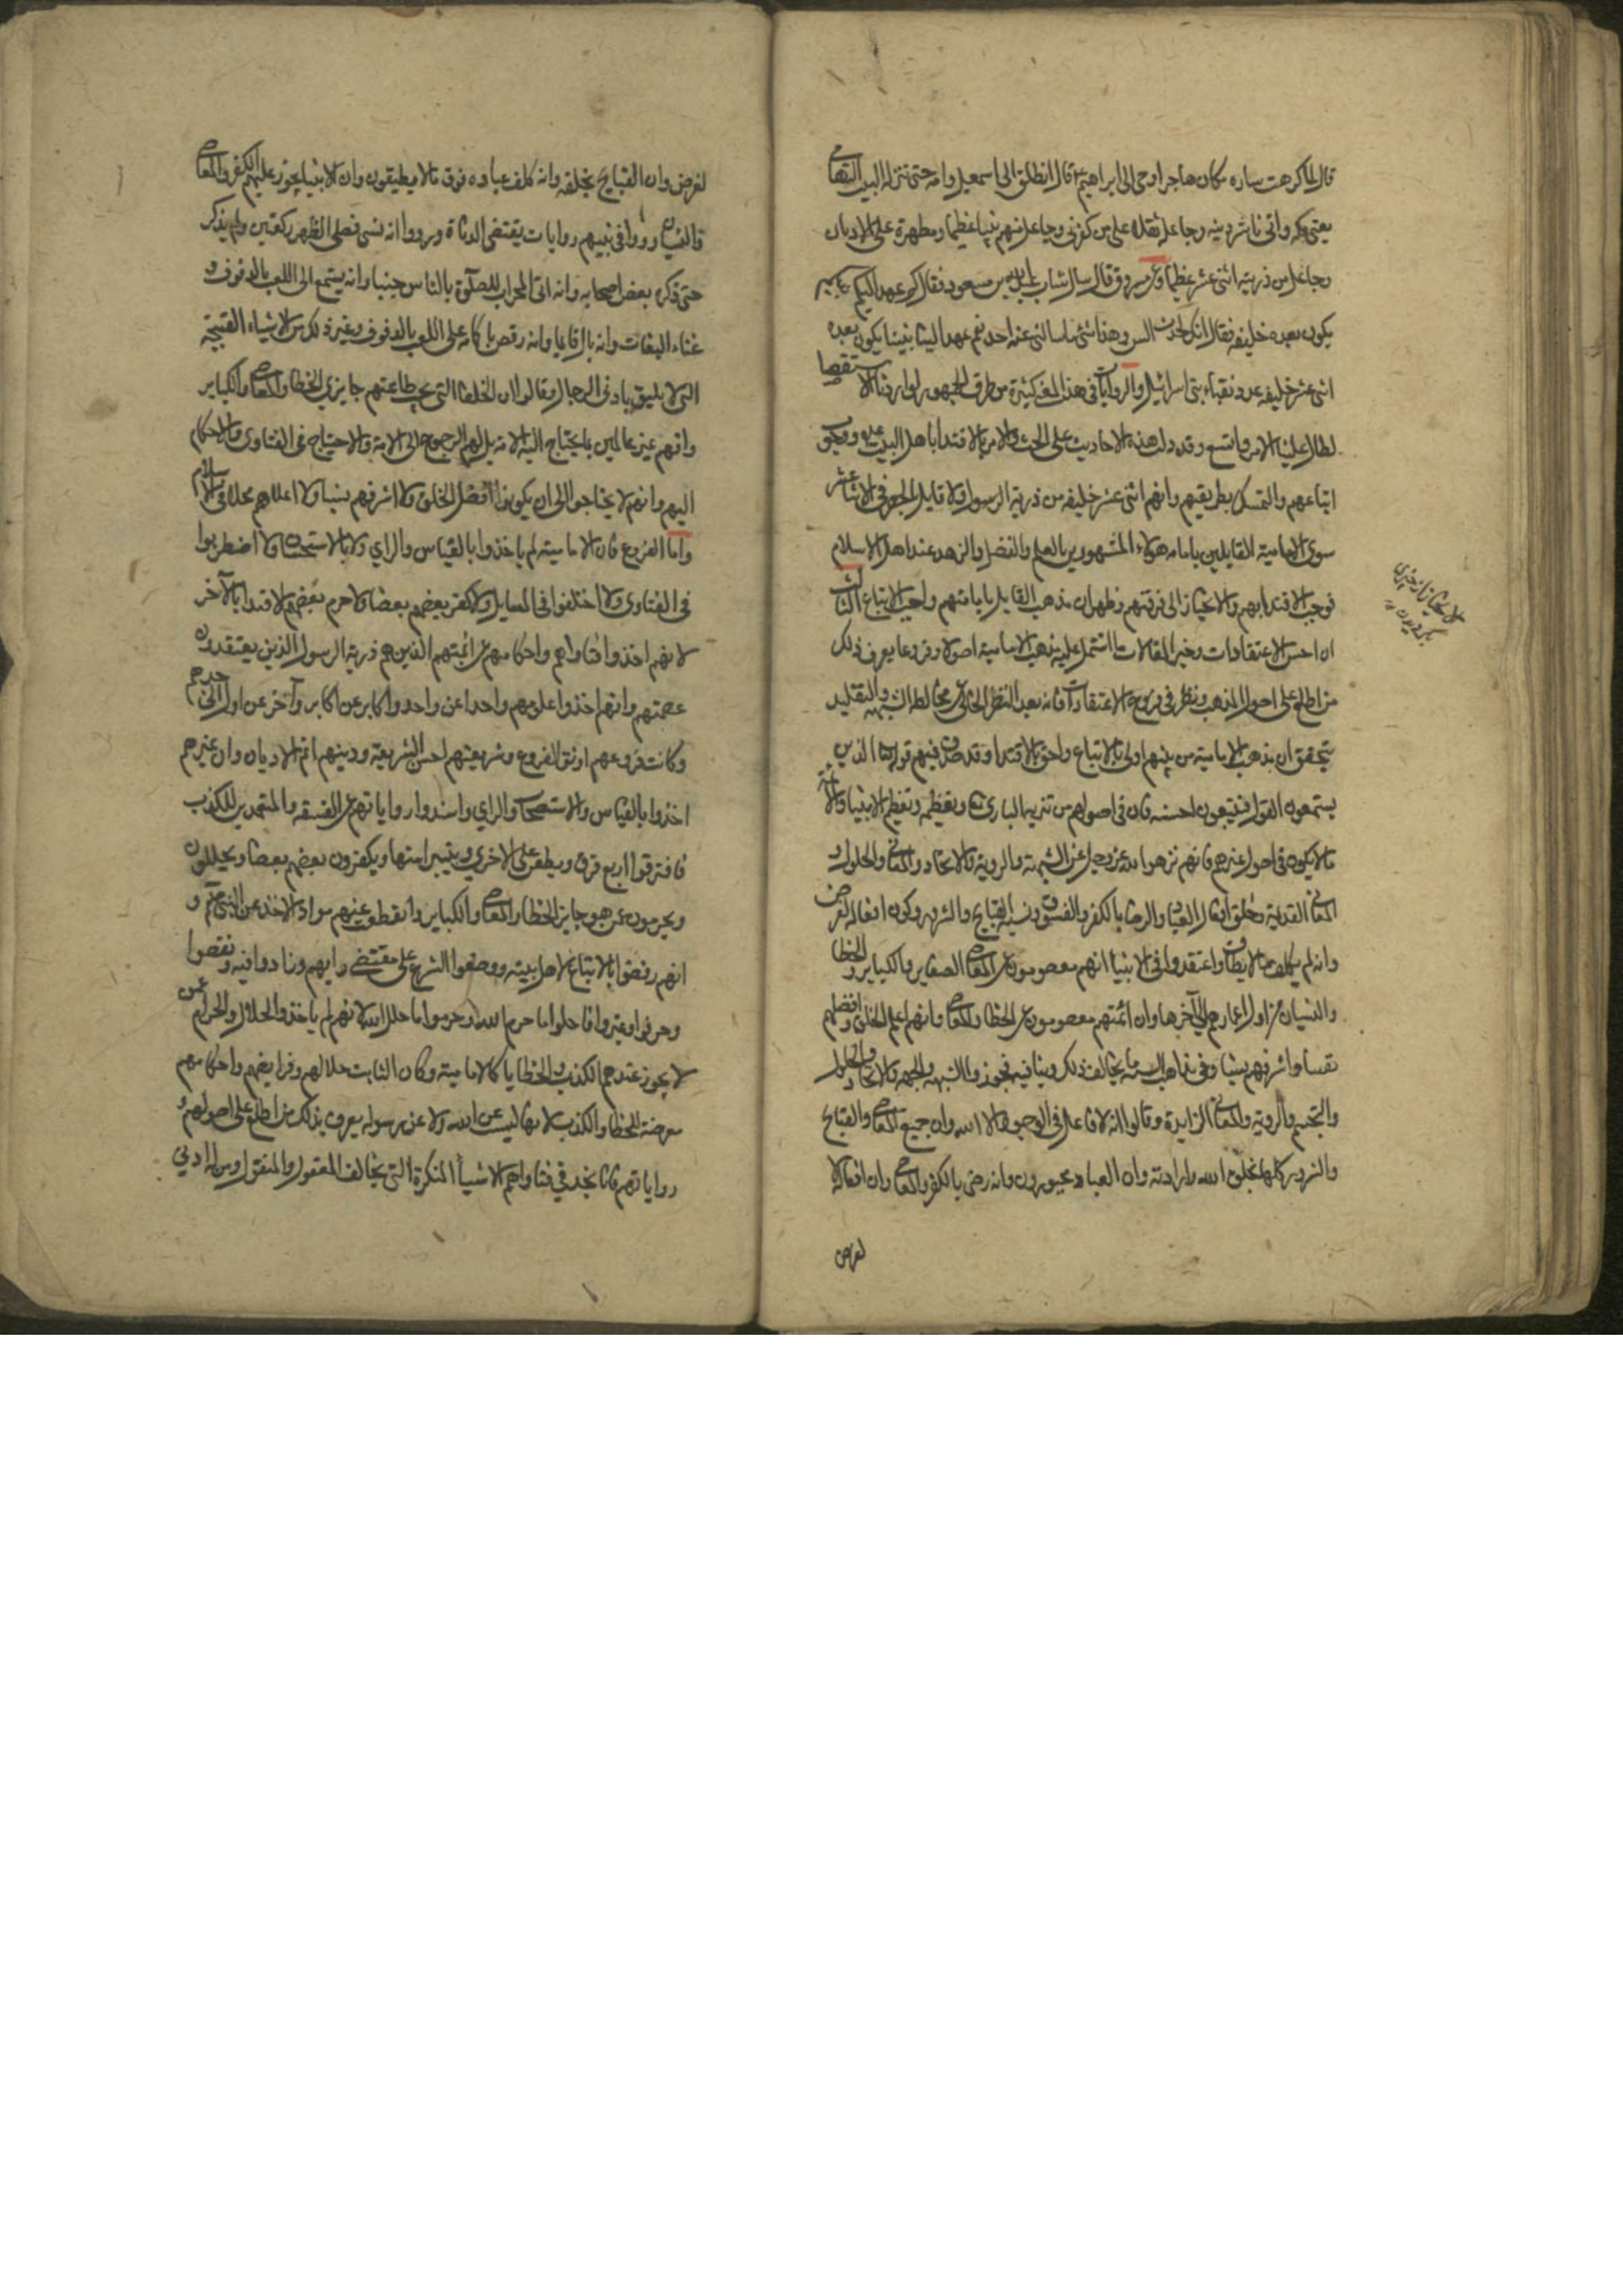 قال لما كرهت ساره مكان هاجر اوحى الى ابراهيم قال انطلق الى اسمعيل وامه حتى تنزله البيت التهامى
يعنى مكه وانى ناشر ذريته وجاعلهم ثقلا على من كفر بى وجاعل منهم نبيا عظيما ومظهره على الاديان
وجاعل من ذريته اثنى عشر عظيما وعن مسروق قال سال شاب عبد الله بن مسعود فقال كم عهد اليكم نبيكم
يكون بعده خليفه فقال انك لحدث السن وهذا شئ ما سالنى عنه احد نعم عهد الينا نبينا يكون بعده
اثنى عشر خليفه عدد نقباء بنى اسرائيل والروايات فى هذا المعنى كثيرة من طرق الجمهور لو اردنا الاستقصا
لطال علينا الامر واتسع وقد دلت هذه الاحاديث على الحث والامر بالاقتدا باهل البيت ووجوب
اتباعهم والتمسك بطريقتهم وانهم اثنى عشر خليفه من ذرية الرسول ولا قايل بالحصر فى الاثنا عشر
سوى الامامية القايلين بامامه هولاء المشهورين بالعلم والفضل والزهد عند اهل الاسلام
فوجب الاقتدا بهم والانحياز الى فرقتهم وظهر ان مذهب القايل بامامتهم واجب الاتباع الثالث
ان احسن الاعتقادات وخير المقالات ما اشتمل عليه مذهب الامامية اصولا وفروعا يعرف ذلك
من اطلع على اصول المذهب ونظر فى فروع الاعتقادات فانه بعد النظر الخالى عن مخالطة الشبهه والتقليد
يتحقق ان مذهب الامامية من بينهم اولى بالاتباع واحق بالاقتدا وقد صدق فيهم قوله تعالى الذين
يستمعون القول فيتبعون احسنه فان فى اصولهم من تنزيه البارى وتعظيمه وتعظيم الانبيا والائمة
ما لا يكون فى اصول غيرهم فانهم نزهوا الله عز وجل عن الشبهة والروية والاتحاد والمعانى والحلول و
المعانى القديمة وخلق افعال العباد والرضا بالكفر والفسوق ونسبة القبايح والشرور وكون افعاله لغرض
وانه لم يكلف ما لا يطاق واعتقدوا فى الانبيا انهم معصومون عن المعاصى الصغاير والكباير والخطا
والنسيان من اول اعمارهم الى آخرها وان ائمتهم معصومون عن الخطا والمعاصى وانهم اعلم الخلق وافضلهم
نفسا واشرفهم نسبا وفى مذاهب السنة ما يخالف ذلك وينافيه فجوزوا الشبه والجهه والاتحاد والحلول
والتجسيم والروية والمعانى الزايدة وقالوا انه لا فاعل فى الوجود الا الله وان جميع المعاصى والقبايح
والشرور كلها بخلق الله وارادته وان العباد مجبورون وانه رضى بالكفر والمعاصى وان افعاله لا
لغرض
لغرض وان القبايح بخلقه وانه كلف عباده فوق ما لا يطيقون وان الانبيا يجوز عليهم الكفر والمعاصى
والنسيان ورووا فى نبيهم روايات يقتضى الدناة ورووا انه نسى فصلى الظهر ركعتين ولم يذكر
حتى ذكره بعض اصحابه وانه اتى المحراب للصلوة بالناس جنبا وانه يستمع الى اللعب بالدفوف و
غناء البغات وانه بال قايما وانه رقص باكمامه على اللعب بالدفوف وغير ذلك من الاشياء القبيحة
التى لا يليق بادنى الرجال وقالوا ان الخلفا التى يجب طاعتهم جايزى الخطا والمعاصى والكباير
وانهم غير عالمين بما يحتاج اليه الامة بل لهم الرجوع الى الامة والاحتياج فى الفتاوى والاحكام
اليهم وانهم لا يحتاجوا الى ان يكونوا افضل الخلق ولا اشرفهم نسبا ولا اعلاهم محلا فى الاسلام
واما الفروع فان الامامية لم ياخذوا بالقياس والراى ولا بالاستحسان ولا اضطربوا
فى الفتاوى ولا اختلفوا فى المسايل ولا كفر بعضهم بعضا ولا حرم بعضهم الاقتدا بالآخر
لانهم اخذوا فتاواهم واحكامهم عن ائمتهم الذين هم ذرية الرسول الذين يعتقدون
عصمتهم وانهم اخذوا علومهم واحدا عن واحد واكابر عن اكابر وآخر عن اول الى جدهم
وكانت فروعهم اوثق الفروع وشريعتهم احسن الشريعة ودينهم اتم الاديان وان غيرهم
اخذوا بالقياس والاستحسان والراى واسندوا رواياتهم عن الفسقه والمتعمدين للكذب
فافترقوا اربع فرق ويطعن على الاخرى ويتبرا منها ويكفرون بعضهم بعضا ويحللون
ويحرمون عمن هو جايز الخطا والمعاصى والكباير وانقطع عنهم مواد الاخذ عن النبى و
انهم رفضوا الاتباع لاهل بيته ووضعوا الشرع على مقتضى رايهم وزادوا فيه ونقصوا
وحرفوا وغيروا فاحلوا ما حرم الله وحرموا ما حلل الله لانهم لم ياخذوا الحلال والحرام عمن
لا يجوز عندهم الكذب والخطا كالامامية وكان الثابت حلالهم وفرايضهم واحكامهم
معرضة للخطا والكذب لانها ليست عن الله ولا عن رسوله يعرف بذلك من اطلع على اصولهم و
رواياتهم فانا نجد فى فتاواهم الاشيا المنكرة التى يخالف المعقول والمنقول ومن له ادنى